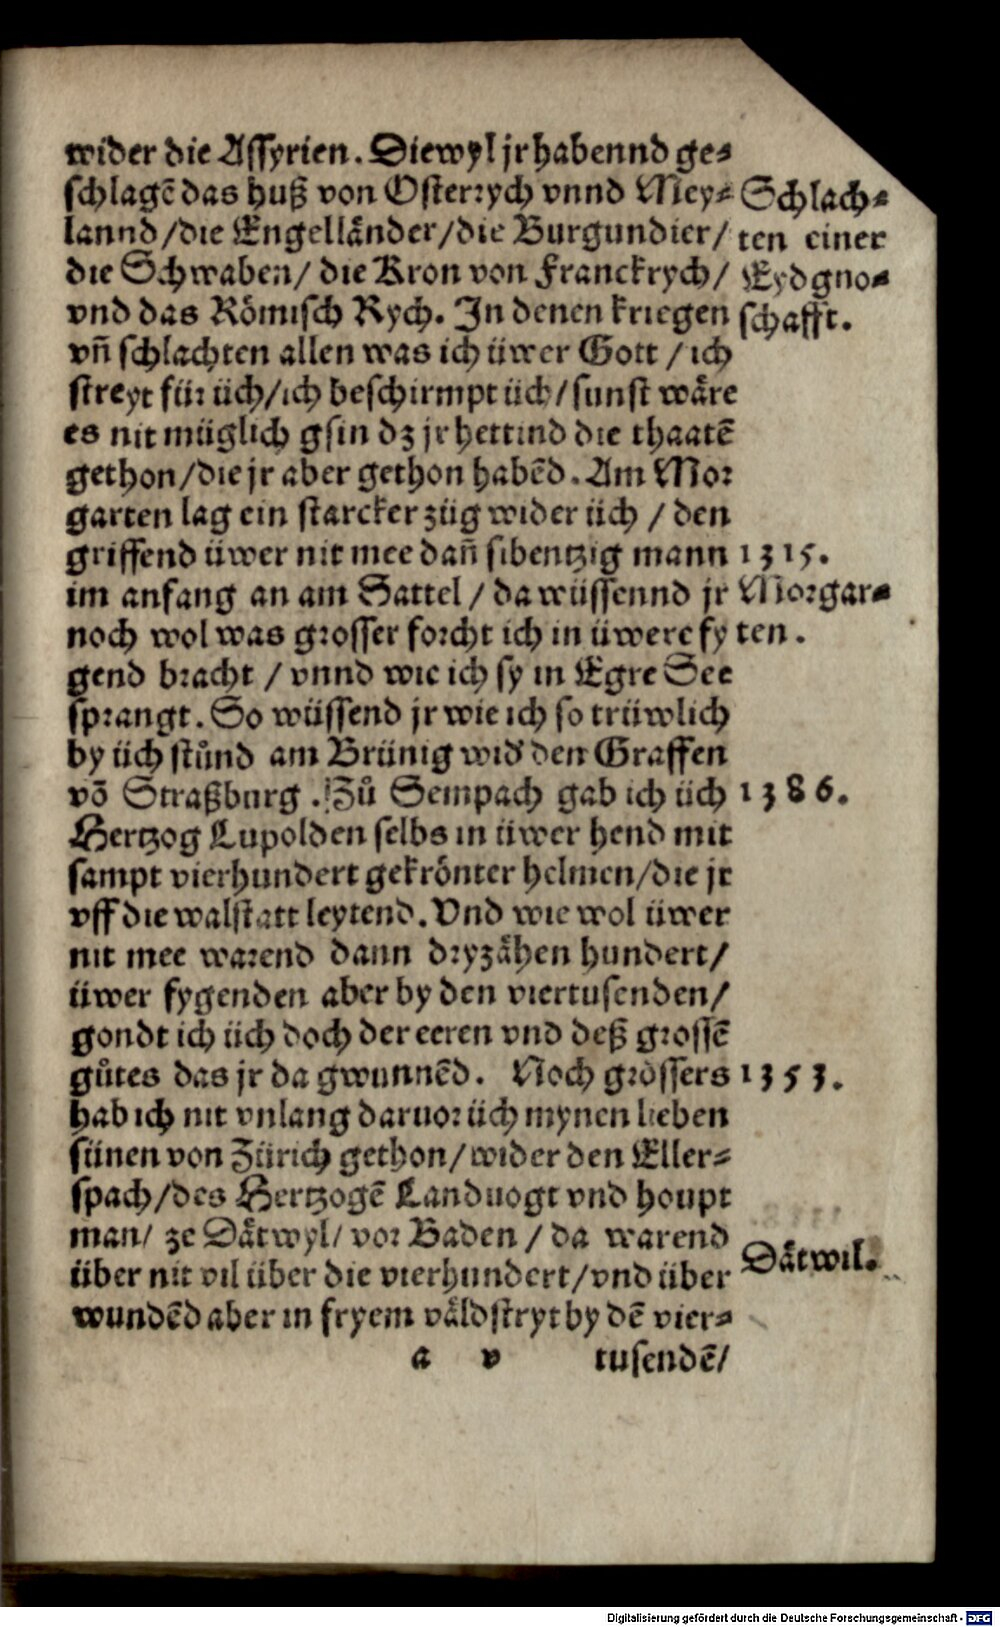 wider die Assyrien. Diewyl jr habennd ge-
schlagē das huß von Osterrych vnnd Mey-
lannd/die Engelländer/die Burgundier/
die Schwaben/ die Kron von Franckrych/
vnd das Römisch Rych. In denen kriegen
vñ schlachten allen was ich üwer Gott / ich
streyt für üch/ich beschirmpt üch/sunst wäre
es nit müglich gsin dz jr hettind die thaatē
gethon/die jr aber gethon habēd. Am Mor
garten lag ein starcker züg wider üch / den
griffend üwer nit mee dañ sibentzig mann
im anfang an am Sattel / da wüssennd jr
noch wol was grosser forcht ich in üwere fy
gend bracht / vnnd wie ich sy in Egre See
sprangt. So wüssend jr wie ich so trüwlich
by üch stůnd am Brünig wid' den Graffen
vō Straßburg. Zů Sempach gab ich üch
Hertzog Lupolden selbs in üwer hend mit
sampt vierhundert gekrönter helmen/die jr
vff die walstatt leytend. Vnd wie wol üwer
nit mee warend dann dryzähen hundert/
üwer fygenden aber by den viertusenden/
gondt ich üch doch der eeren vnd deß grossē
gůtes das jr da gwunnēd. Noch grössers
hab ich nit vnlang daruor üch mynen lieben
sünen von Zürich gethon/wider den Eller-
spach/des Hertzogē Landuogt vnd houpt
man/ ze Dätwyl/ vor Baden / da warend
über nit vil über die vierhundert/vnd über
wundēd aber in fryem väldstryt by dē vier-
a v tusendē/
Schlach-
ten einer
Eydgno-
schafft.
1315.
Morgar-
ten.
1386.
1353.
Dätwil.
Digitalisierung gefördert durch die Deutsche Forschungsgemeinschaft - DFG